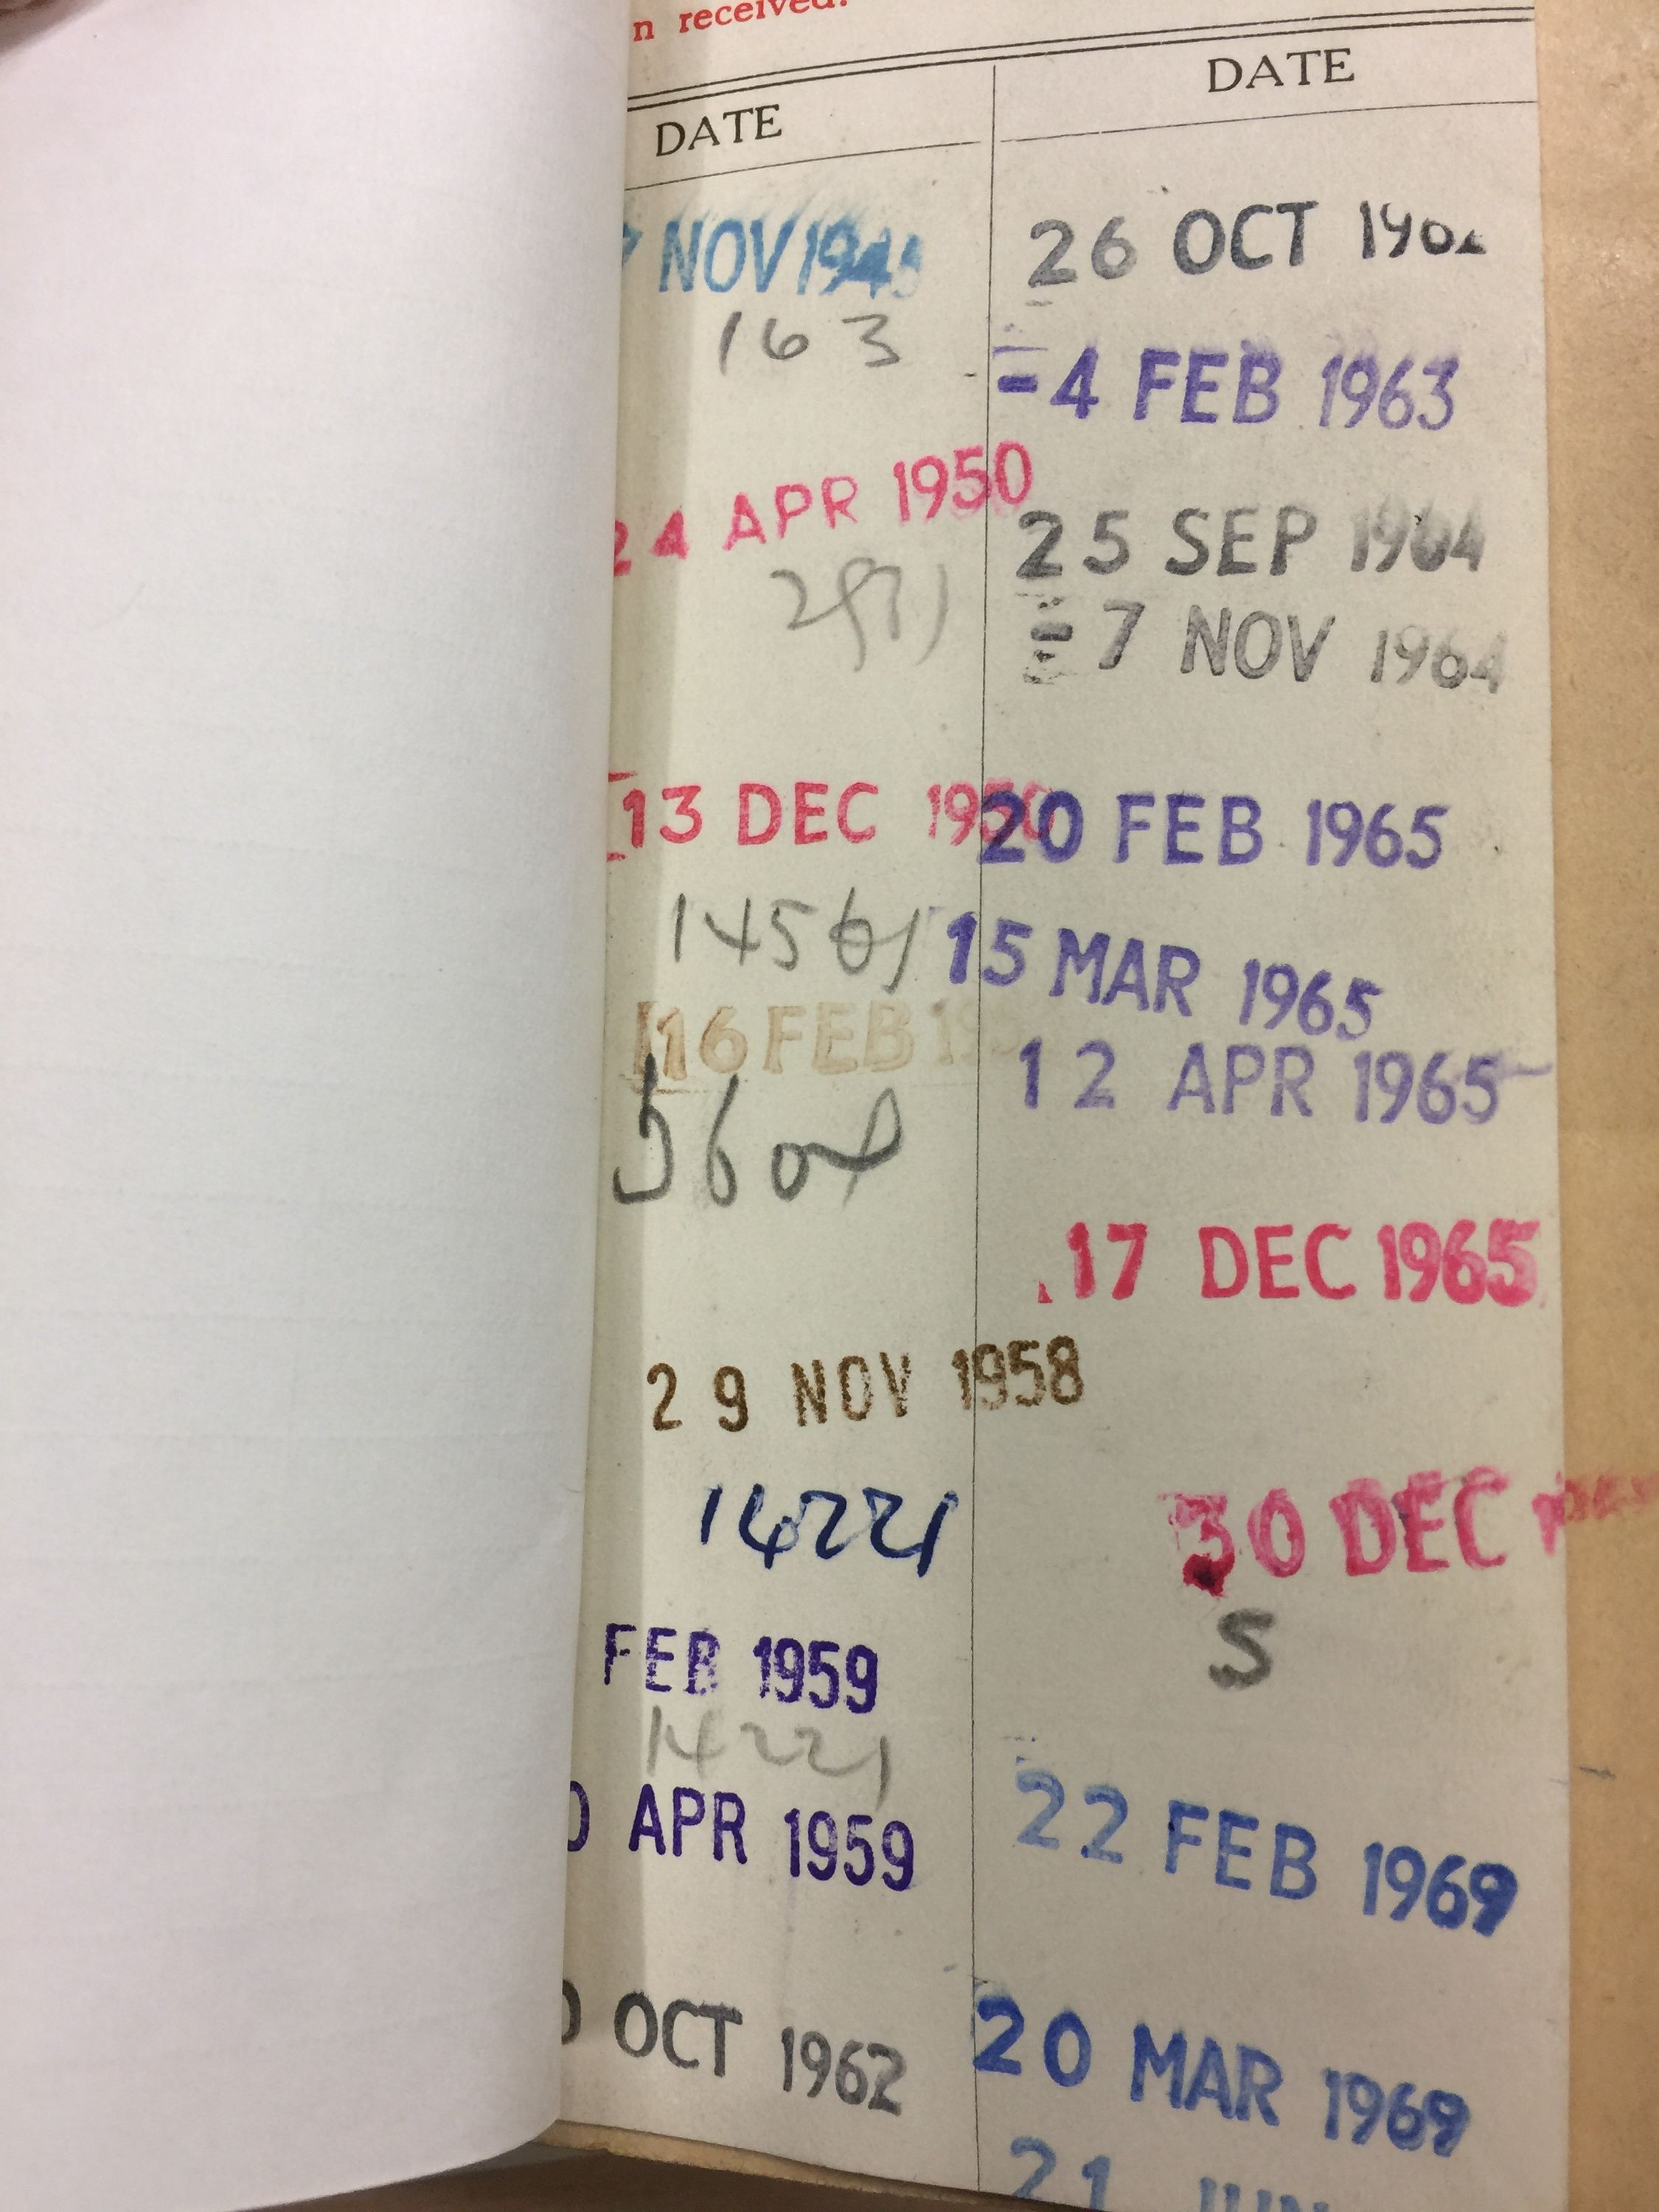 n received.
DATE
NOV
163
24 APR 1950
13 DEC 1950
14561
16 FEB
29 NOV 1958
14221
FEB 1959
14221
APR 1959
OCT 1962
DATE
26 OCT 1962
-4 FEB 1963
25 SEP 1964
-7 NOV 1964
20 FEB 1965
15 MAR 1965
12 APR 1965
17 DEC 1965
30 DEC
S
22 FEB 1969
20 MAR 1969
21 JUN